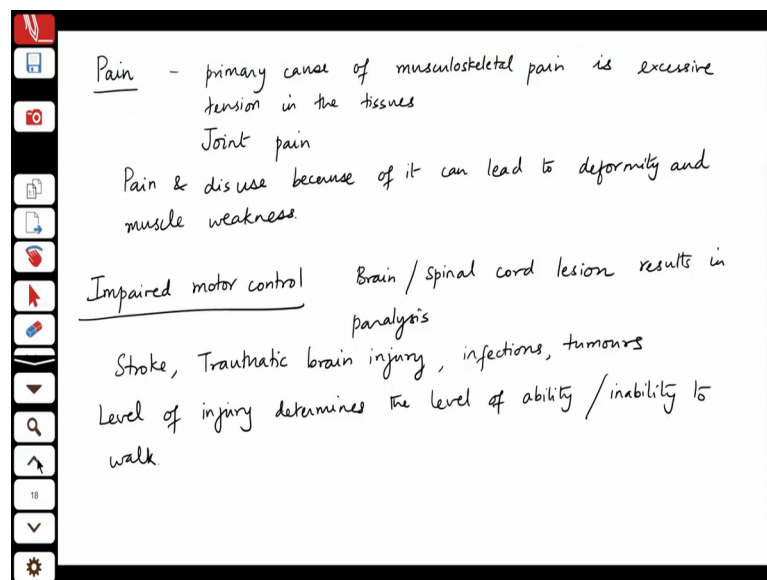 Pain - primary cause of musculoskeletal pain is excessive
tension in the tissues
Joint pain
Pain & disuse because of it can lead to deformity and
muscle weakness.
Impaired motor control Brain / Spinal cord lesion results in
paralysis
Stroke, Trauthatic brain injury, infections, tumours
Level of injury determines the level of ability / inability to
walk.
18